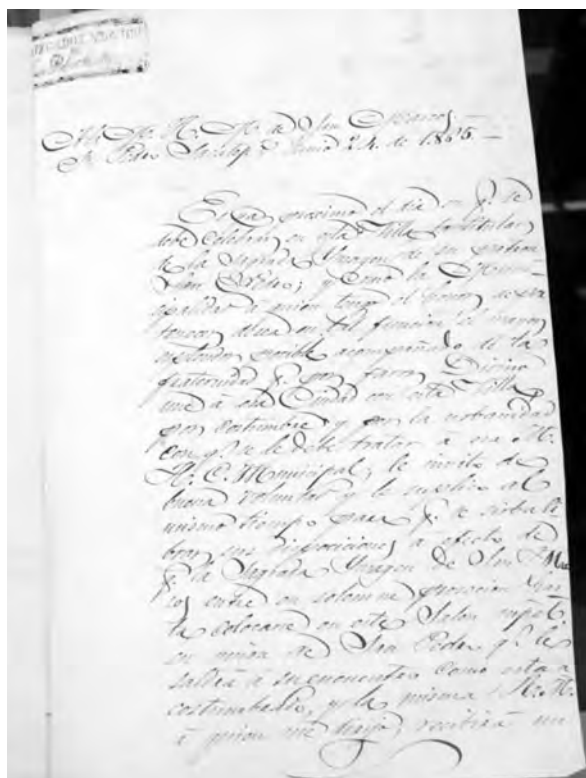 de San Marcos
Sn. Pedro Sacatep. Junio 24. de 1866.
Está proximo el dia en q. se
debe celebrar en esta Villa la titular
de la Sagrada Ymagen de su patron
San Pedro; y como la Muni-
cipalidad á quien tengo el honor de
desea en tal funcion el mayor
esplendor posible acompañado de la
fraternidad q. por favor Divino
une á esa Ciudad con esta Villa,
por costumbre y por la
con q. se le debe tratar á esa M.
N. C. Municipal, le invito de
buena voluntad y le suplico al
mismo tiempo para q. se sirva li-
brar sus disposiciones á efecto de
q. la Sagrada Ymagen de San Mar
cos entre en solemne procesion
ta colocarse en este Salon
en union de San Pedro q. le
saldrá á su encuentro como está
costumbrado, y la misma
á quien me dirijo, recibirá un